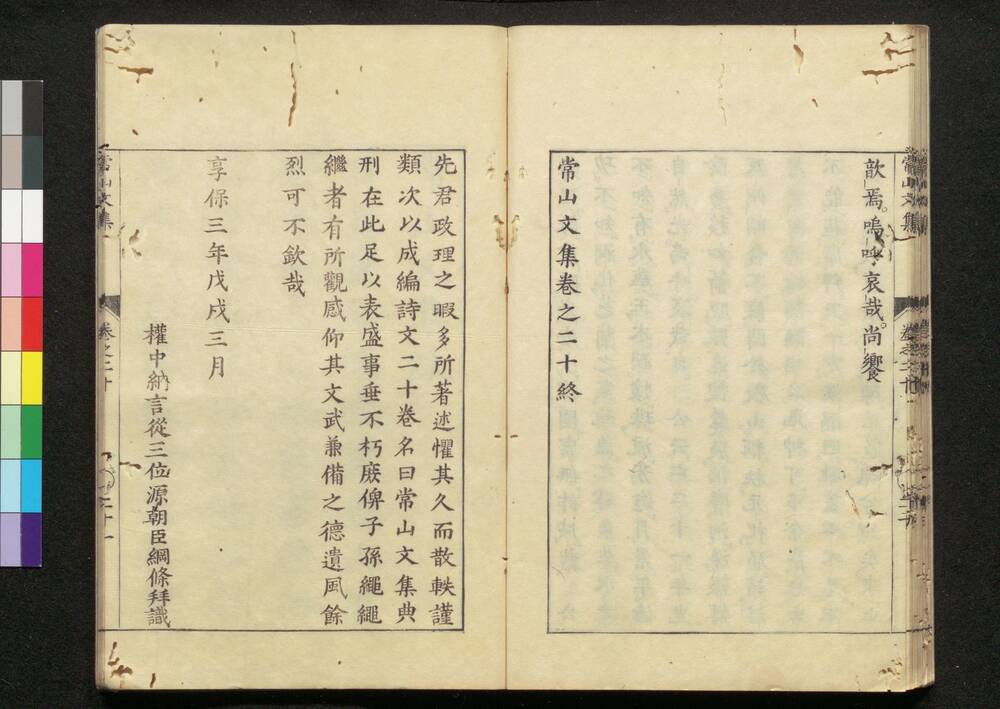 歆焉。嗚呼哀哉。尚饗
常山文集卷之二十終
先君政理之暇多所著述懼其久而散軼謹
類次以成編詩文二十卷名曰常山文集典
刑在此足以表盛事垂不朽庶俾子孫繩繩
繼者有所觀感仰其文武兼備之德遺風餘
烈可不欽哉
享保三年戊戌三月
權中納言從三位源朝臣綱條拜識
常山文集
卷之二十